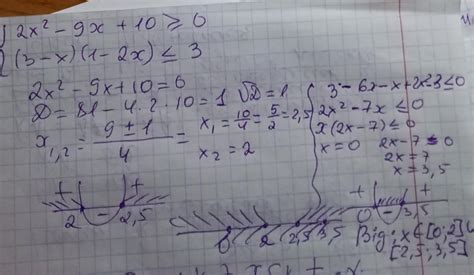 2x² - 9x + 10 ≥ 0
(3-x)(1-2x) ≤ 3
2x² - 9x + 10 = 0
D = 81 - 4·2·10 = 1 √D = 1
x₁,₂ = (9 ± 1)/4 =
x₁ = 10/4 = 5/2 = 2,5
x₂ = 2
3 - 6x - x + 2x² - 3 ≤ 0
2x² - 7x ≤ 0
x(2x-7) ≤ 0
x = 0 2x - 7 = 0
2x = 7
x = 3,5
+ - +
2 2,5
0 2 2,5 3,5
+ - +
0 3,5
Від: x ∈ [0;2] ∪
[2,5;3,5]